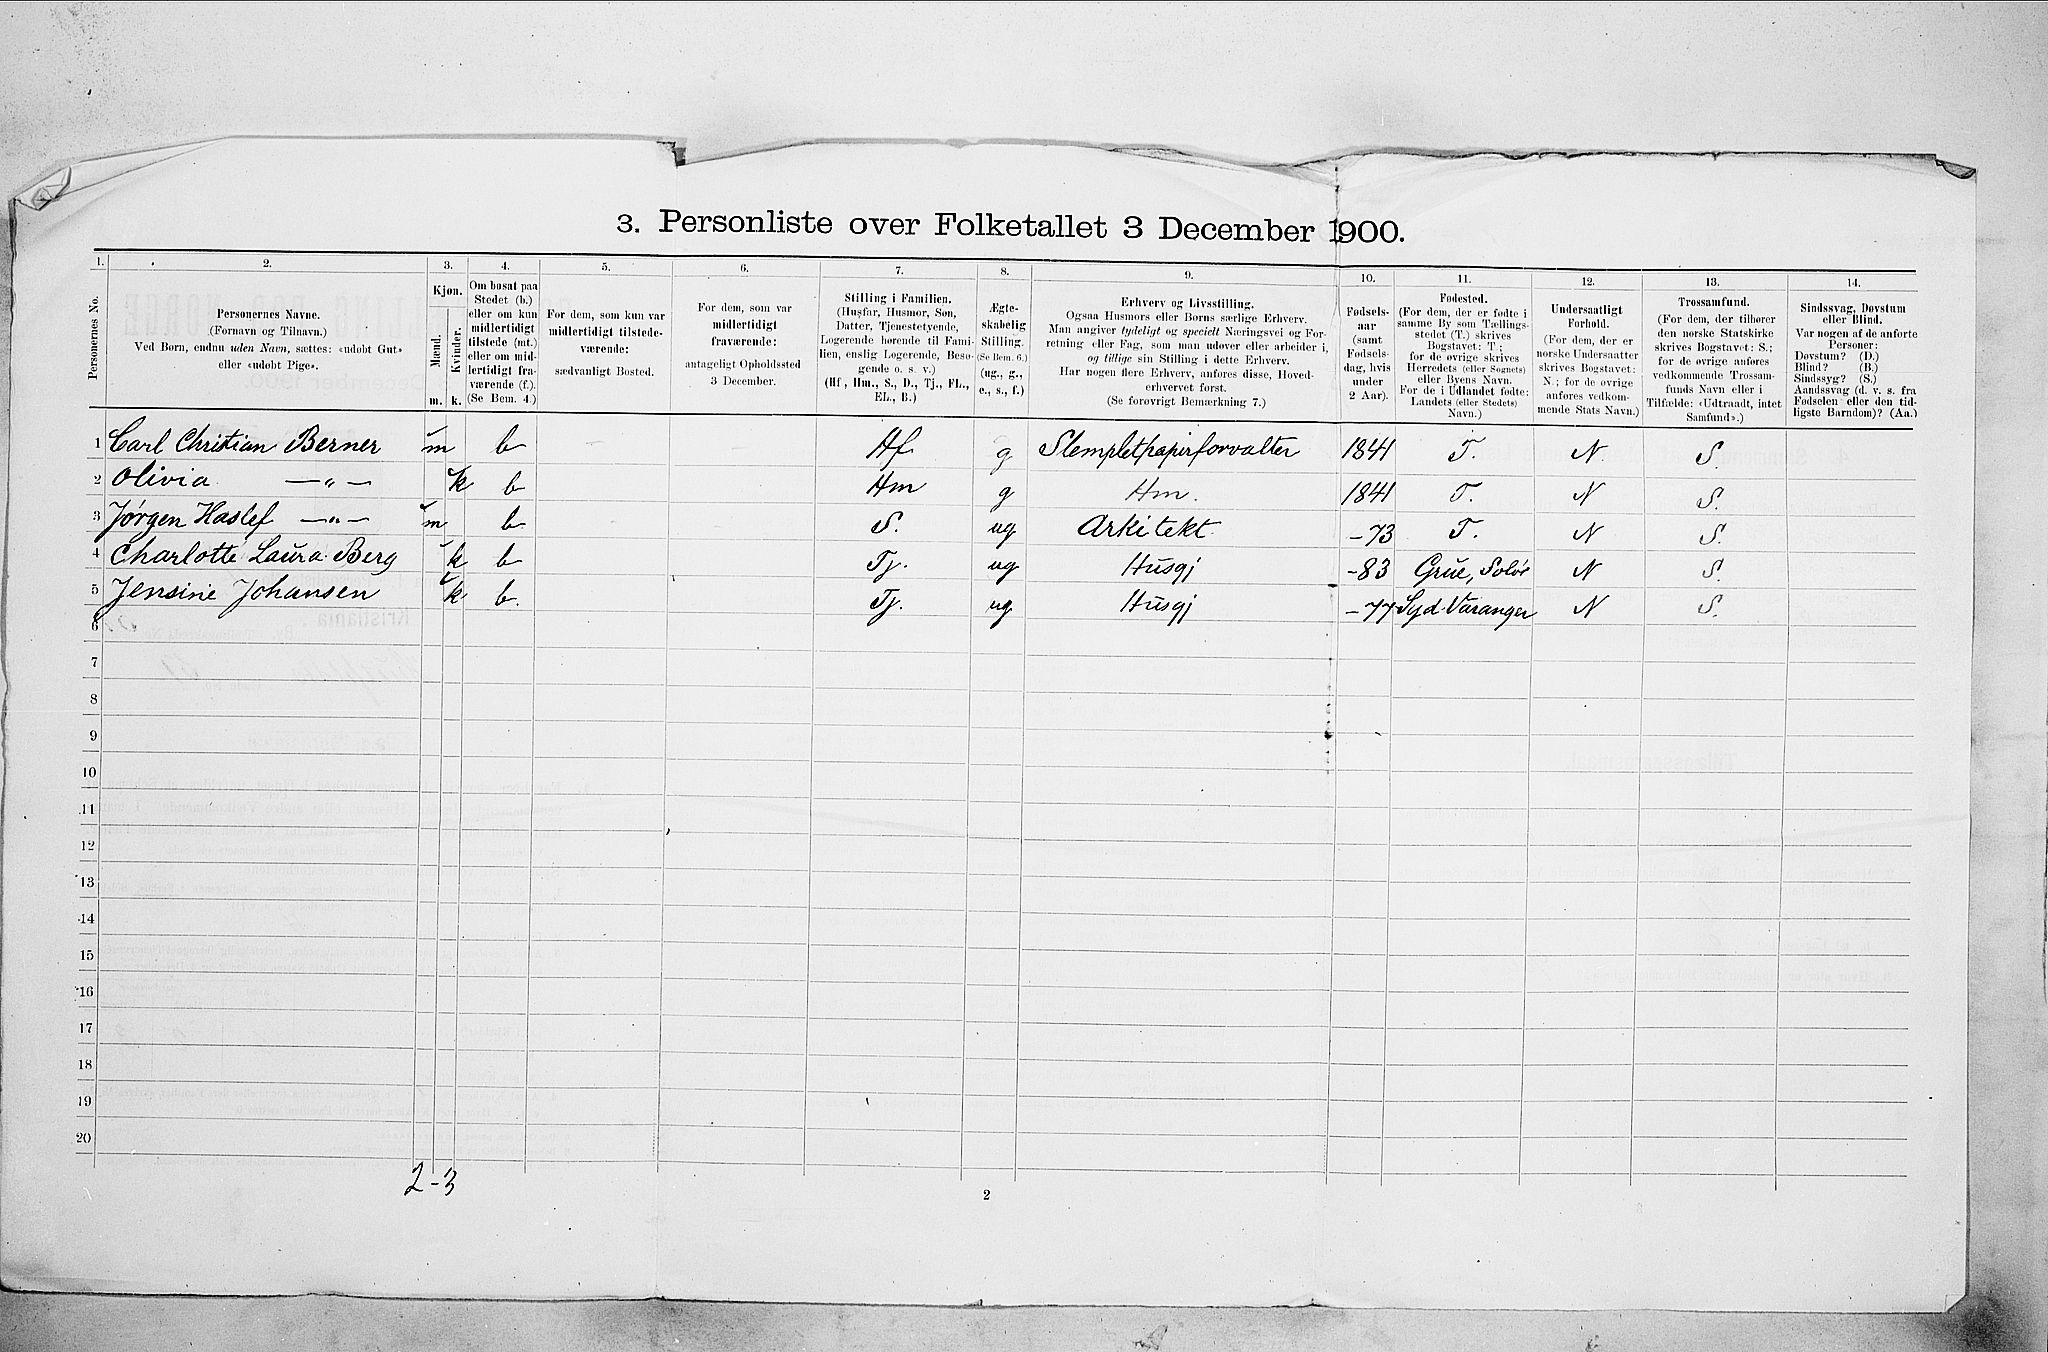 3. Personliste over Folketallet 3 December 1900.
1. 2. 3. 4. 5. 6. 7. 8. 9. 10. 11. 12. 13. 14.
Personernes No.
Personernes Navne.
(Fornavn og Tilnavn.)
Ved Børn, endnu uden Navn, sættes: «udøbt Gut»
eller «udøbt Pige».
Kjøn.
Mænd.
Kvinder.
m. k.
Om bosat paa
Stedet (b.)
eller om kun
midlertidigt
tilstede (mt.)
eller om mid-
lertidigt fra-
værende (f.).
(Se Bem. 4.)
For dem, som kun var
midlertidigt tilstede-
værende:
sædvanligt Bosted.
For dem, som var
midlertidigt
fraværende:
antageligt Opholdssted
3 December.
Stilling i Familien.
(Husfar, Husmor, Søn,
Datter, Tjenestetyende,
Logerende hørende til Fami-
lien, enslig Logerende, Besø-
gende o. s. v.)
(Hf, Hm., S., D., Tj., FL.,
EL., B.)
Ægte-
skabelig
Stilling.
(Se Bem. 6.)
(ug., g.,
e., s., f.)
Erhverv og Livsstilling.
Ogsaa Husmors eller Børns særlige Erhverv.
Man angiver tydeligt og specielt Næringsvei og For-
retning eller Fag, som man udøver eller arbeider i,
og tillige sin Stilling i dette Erhverv.
Har nogen flere Erhverv, anføres disse, Hoved-
erhvervet først.
(Se forøvrigt Bemærkning 7.)
Fødsels-
aar
(samt
Fødsels-
dag, hvis
under
2 Aar).
Fødested.
(For dem, der er fødte i
samme By som Tællings-
stedet (T.) skrives
Bogstavet: T.;
for de øvrige skrives
Herredets (eller Sognets)
eller Byens Navn.
For de i Udlandet fødte:
Landets (eller Stedets)
Navn.)
Undersaatligt
Forhold.
(For dem, der er
norske Undersaatter
skrives Bogstavet:
N.; for de øvrige
anføres vedkom-
mende Stats Navn.)
Trossamfund.
(For dem, der tilhører
den norske Statskirke
skrives Bogstavet: S.;
for de øvrige anføres
vedkommende Trossam-
funds Navn eller i
Tilfælde: «Udtraadt, intet
Samfund».)
Sindssvag, Døvstum
eller Blind.
Var nogen af de anførte
Personer:
Døvstum? (D.)
Blind? (B.)
Sindssyg? (S.)
Aandssvag (d. v. s. fra
Fødselen eller den tid-
ligste Barndom)? (Aa.)
1 Carl Christian Berner m b Hf g Stempletpapirforvalter 1841 T. N. S.
2 Olivia —"— k b Hm g Hm. 1841 T. N S.
3 Jørgen Haslef —"— m b S. ug Arkitekt. -73 T. N S.
4 Charlotte Laura Berg k b Tj. ug Husgj -83 Grue, Solør N S.
5 Jensine Johansen k b. Tj. ug Husgj -77 Syd-Varanger N S.
6
7
8
9
10
11
12
13
14
15
16
17
18
19
20
2-3
2